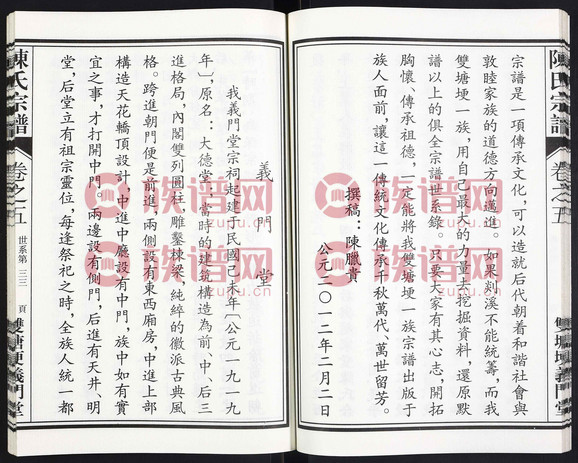 陳氏宗譜
卷之五
雙塘埂義門堂
宗譜是一項傳承文化，可以造就后代朝着和諧社會與
敦睦家族的道德方向邁進。如果剡溪不能統籌，而我
雙塘埂一族，用自己最大的力量去挖掘資料，還原默
譜以上的俱全宗譜世系錄。只要大家有其心志，開拓
胸懷、傳承祖德，一定能將我雙塘埂一族宗譜出版于
族人面前，讓這一傳統文化傳承千秋萬代、萬世留芳。
撰稿：陳臘貴
公元二〇一二年二月二日
義門堂
我義門堂宗祠起建于民國己未年〔公元一九一九
年〕，原名：大德堂，當時的建築構造為前、中、后三
進格局，內閣雙列圓柱，雕鑿棟梁，純綷的徽派古典風
格。跨進朝門便是前進，兩側設有東西廂房，中進上部
構造天花轎頂設計，中進中廳設有中門，族中如有實
宜之事，才打開中門。兩邊設有側門，后進有天井、明
堂，后堂立有祖宗靈位，每逢祭祀之時，全族人統一都
陳氏宗譜
卷之五
世系第
三三
頁
雙塘埂義門堂
族谱网
zuzu.cn